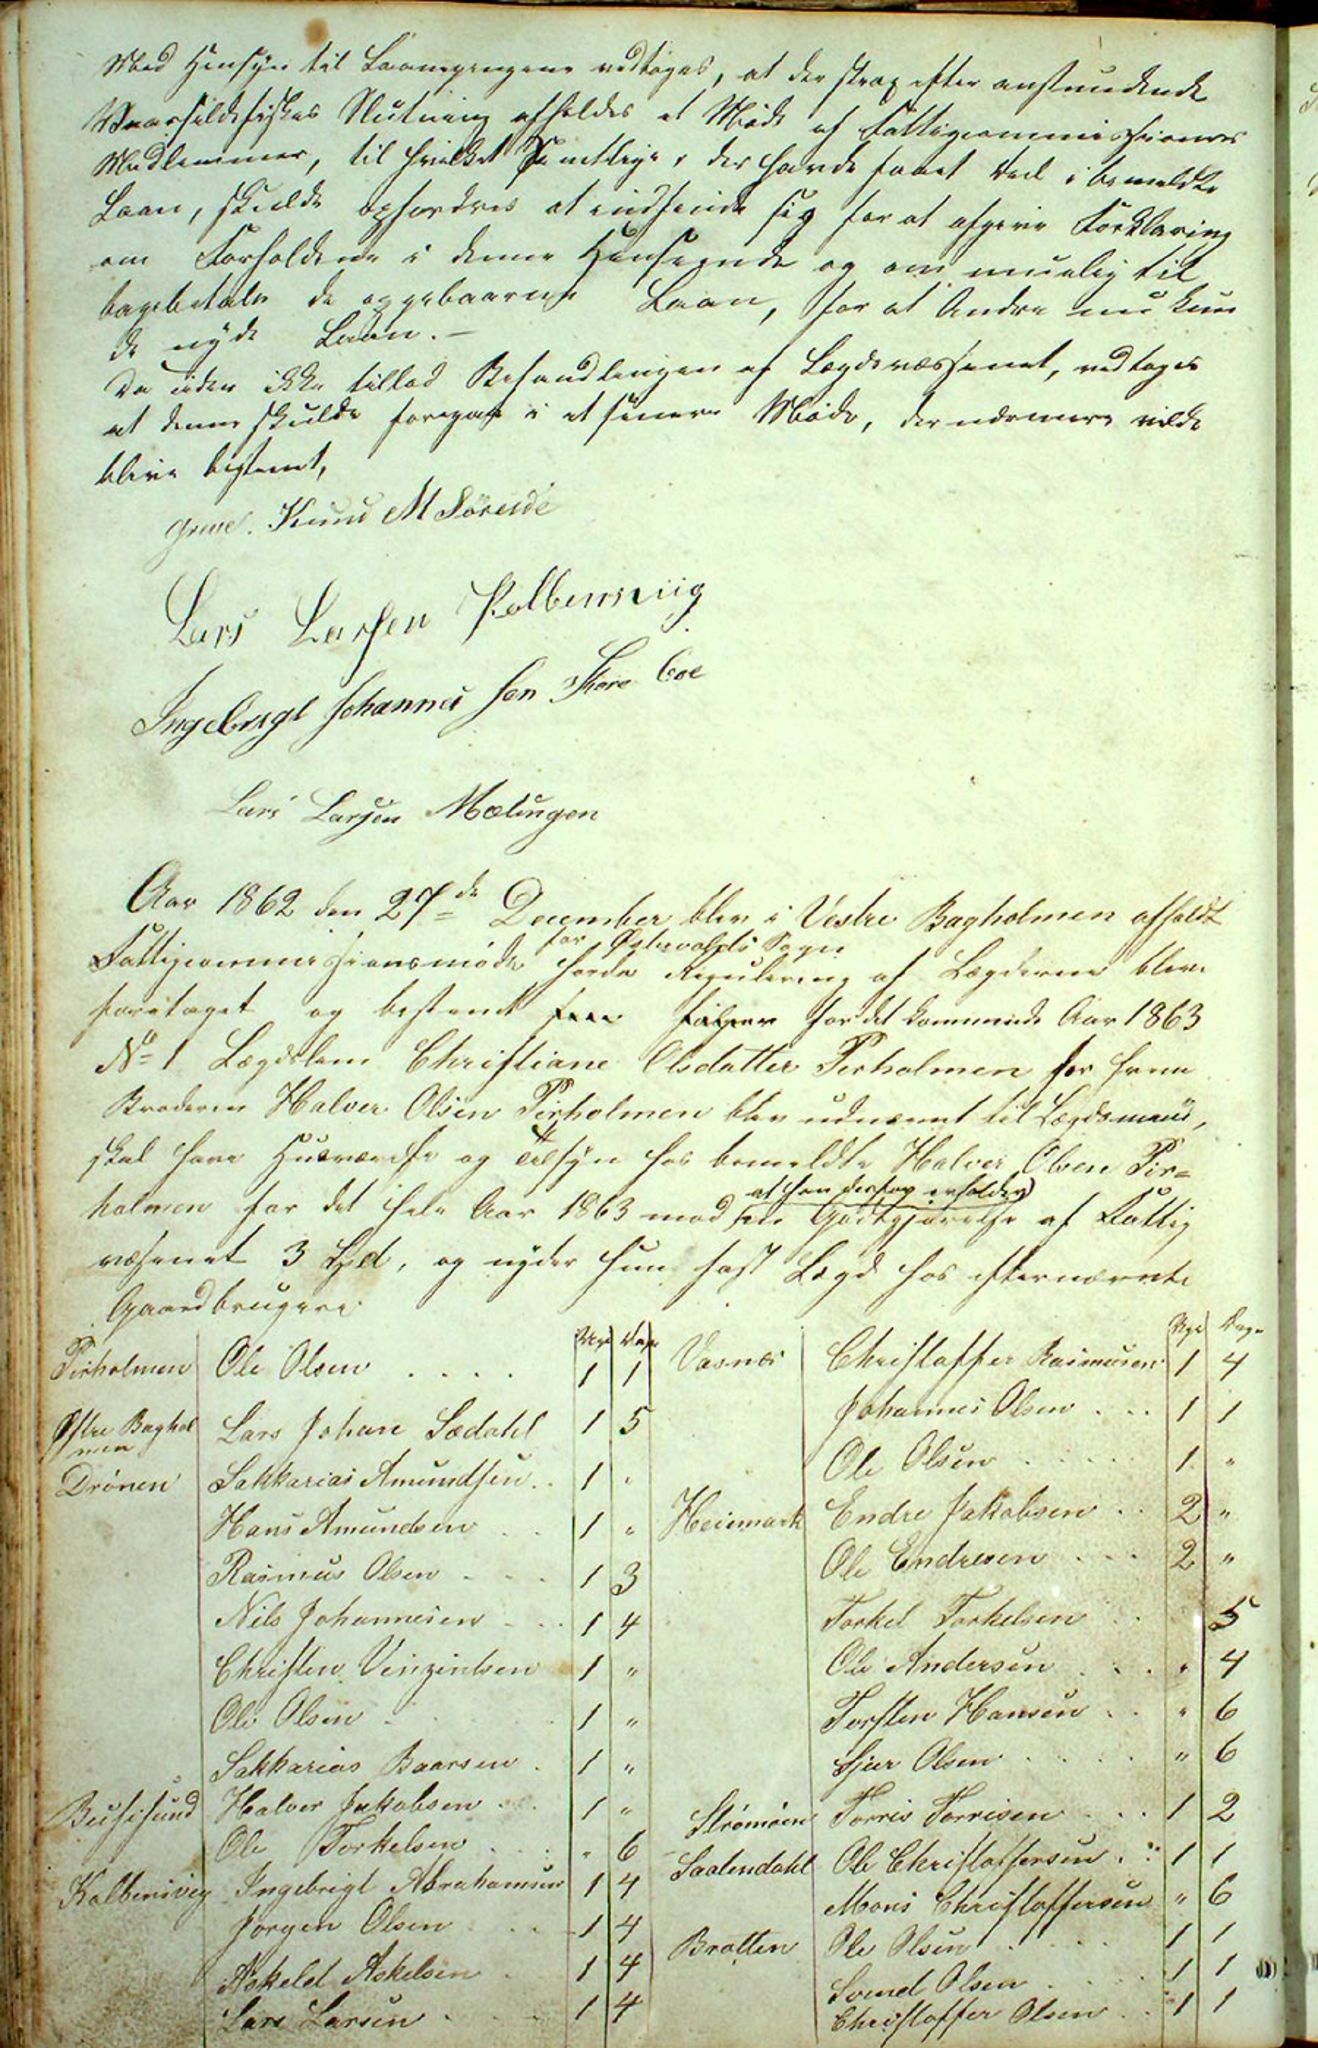 Med Hensyn til Laanepengene vedtoges, at der strax efter anstundende
Vaarsildefiskes Slutning afholdes et Møde af Fattigcommissionens
Medlemmer, til hvilket Samtlige der havde faaet Deel i bemeldte
Laan, skulde opfordres at indfinde sig for at afgive Forklaring
om Forholdene i denne Henseende og om muelig til
bagebetale de oppebaarne Laan, for at Andre nu kun
de nyde Laan. –
Da tiden ikke tillod Behandlingen af Lægdevæsenet, vedtoges
at denne skulde foregaae i et senere Møde, der nærmere vilde
blive bestemt,
Knud M Sörende
Lars Larsen Kolbensviig
Ingebrigt Johannes sen
Lars Larsen Mælingen
Aar 1862 den 27de December blev i Vestre Bagholmen afholdt
Fattigcommissionsmøde for Østervolds Sogn hvorda Regulering af Lægderne blev
foretaget og bestemt som følger for det kommende Aar 1863
No 1 Lægdslem Christiane Olsdatter Pirholmen for hvem
Broderen Halver Olsen Pirholmen blev udnævnt til Lægdsmand,
skal have Huusværelse og Tilsyn hos bemeldte Halver Olsen Pir=
holmen for det hele Aar 1863 mod at han derfor erholder en Godtgjørelse af Fattig
væsenet 3 Spd, og nyder hun fast Lægd hos efternævnte
Gaardbrugere
Uge Dage
Pirholmen Ole Olsen . . . . 1 1
Østre Baghol
men Lars Johan Sædahl 1 5
Drönen Sakkarias Amundsen . . 1 "
Hans Amundsen . . 1 "
Rasmus Olsen . . . 1 3
Nils Johannesen . . . 1 4
Christen Vinzintsen 1 "
Ole Olsen . . . 1 "
Sakkarias Baarsen . 1 "
Buesesund Halver Jakobsen . . 1 "
Ole Torkelsen . . . " 6
Kolbensvig Ingebrigt Abrahamsen 1 4
Jørgen Olsen . . . 1 4
Askeld Askelsen . 1 4
Lars Larsen . . . 1 4
Uge Dage
Vasnæs Christoffer Rasmusen 1 4
Johannes Olsen . . . 1 1
Ole Olsen . . . . . 1 "
Heiemark Endre Jakobsen . . 2 "
Ole Endresen . . . 2 "
Torkel Torkelsen . . " 5
Ole Andersen . . . " 4
Torsten Hansen . . " 6
Sjur Olsen . . . . " 6
Strømøen Torris Torrisen . . . 1 2
Saalendahl Ole Christoffersen . . 1 1
Mons Christoffersen " 6
Bratten Ole Olsen . . . . 1 1
Svend Olsen . . . . 1 1
Christoffer Olsen . . 1 1